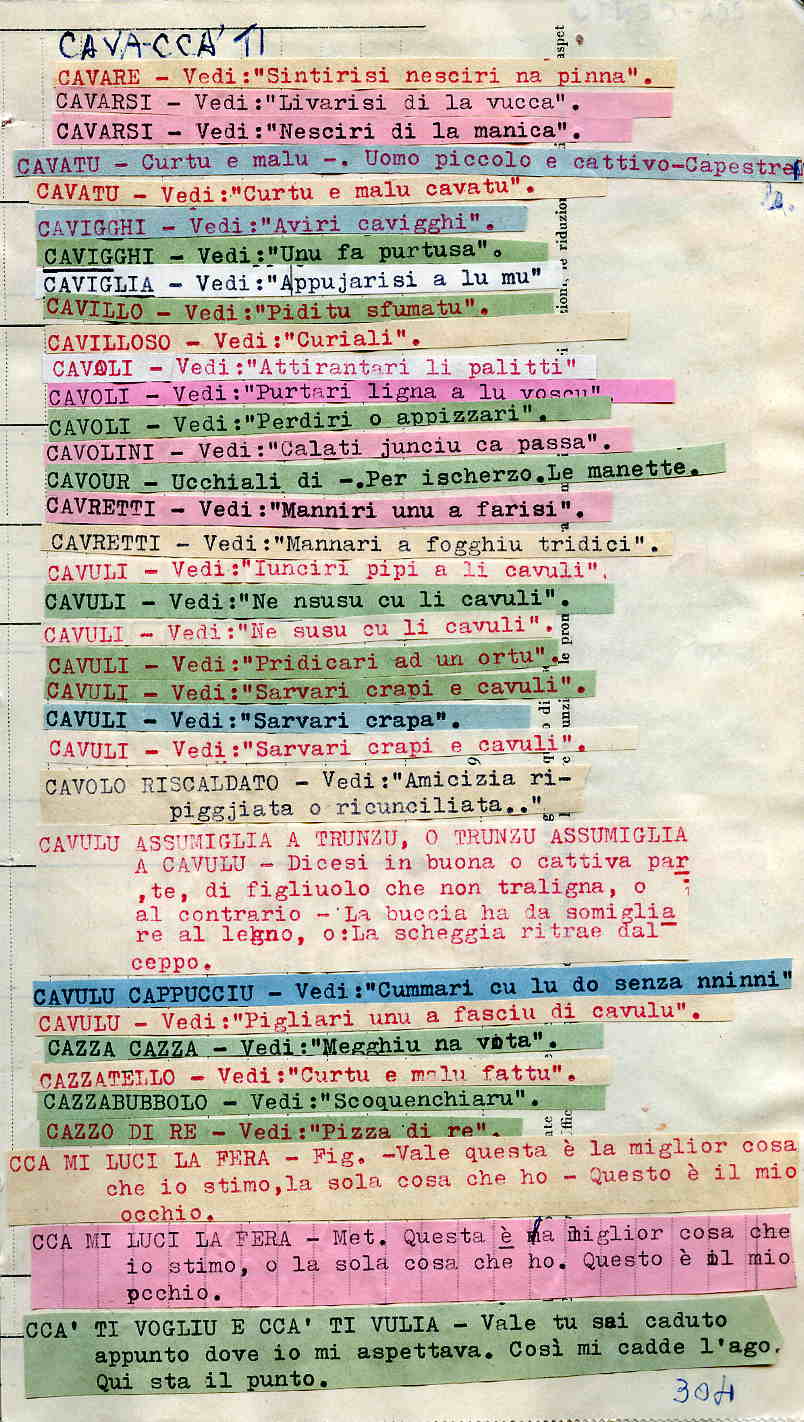 CAVA-CCA' TI
CAVARE - Vedi:"Sintirisi nesciri na pinna".
CAVARSI - Vedi:"Livarisi di la vucca".
CAVARSI - Vedi:"Nesciri di la manica".
CAVATU - Curtu e malu -. Uomo piccolo e cattivo-Capestre
CAVATU - Vedi:"Curtu e malu cavatu".
CAVIGGHI - Vedi:"Aviri cavigghi".
CAVIGGHI - Vedi:"Unu fa purtusa".
CAVIGLIA - Vedi:"Appujarisi a lu mu"
CAVILLO - Vedi:"Piditu sfumatu".
CAVILLOSO - Vedi:"Curiali".
CAVOLI - Vedi:"Attirantari li palitti"
CAVOLI - Vedi:"Purtari ligna a lu voscu".
CAVOLI - Vedi:"Perdiri o appizzari".
CAVOLINI - Vedi:"Calati junciu ca passa".
CAVOUR - Ucchiali di -.Per ischerzo.Le manette.
CAVRETTI - Vedi:"Manniri unu a farisi".
CAVRETTI - Vedi:"Mannari a fogghiu tridici".
CAVULI - Vedi:"Iunciri pipi a li cavuli".
CAVULI - Vedi:"Ne nsusu cu li cavuli".
CAVULI - Vedi:"Ne susu cu li cavuli".
CAVULI - Vedi:"Pridicari ad un ortu".
CAVULI - Vedi:"Sarvari crapi e cavuli".
CAVULI - Vedi:"Sarvari crapa".
CAVULI - Vedi:"Sarvari crapi e cavuli".
CAVOLO RISCALDATO - Vedi:"Amicizia ri-
piggjiata o ricunciliata.."
CAVULU ASSUMIGLIA A TRUNZU, O TRUNZU ASSUMIGLIA
A CAVULU - Dicesi in buona o cattiva par
,te, di figliuolo che non traligna, o
al contrario - La buccia ha da somiglia
re al legno, o:La scheggia ritrae dal
ceppo.
CAVULU CAPPUCCIU - Vedi:"Cummari cu lu do senza nninni"
CAVULU - Vedi:"Pigliari unu a fasciu di cavulu".
CAZZA CAZZA - Vedi:"Megghiu na vota".
CAZZATELLO - Vedi:"Curtu e malu fattu".
CAZZABUBBOLO - Vedi:"Scoquenchiaru".
CAZZO DI RE - Vedi:"Pizza di re".
CCA MI LUCI LA FERA - Fig. -Vale questa è la miglior cosa
che io stimo,la sola cosa che ho - Questo è il mio
occhio.
CCA MI LUCI LA FERA - Met. Questa è la miglior cosa che
io stimo, o la sola cosa che ho. Questo è il mio
pcchio.
CCA' TI VOGLIU E CCA' TI VULIA - Vale tu sei caduto
appunto dove io mi aspettava. Così mi cadde l'ago.
Qui sta il punto.
304